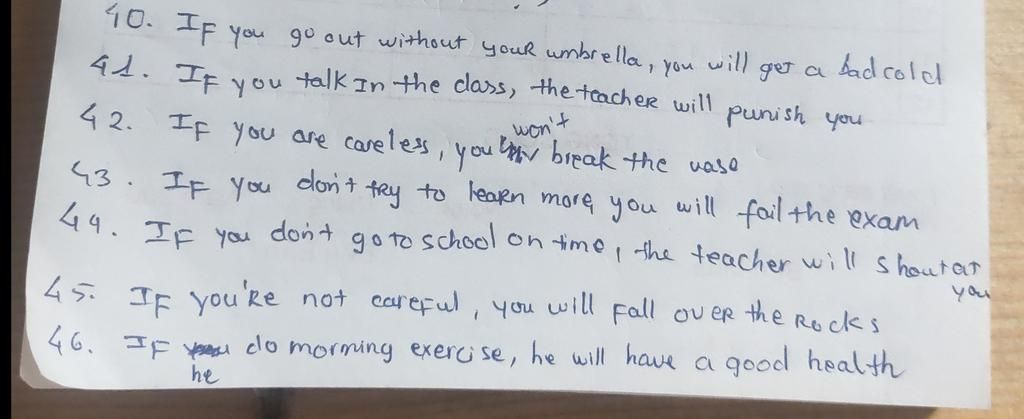 40. If you go out without your umbrella, you will get a bad cold
41. If you talk In the class, the teacher will punish you
42. If you are careless, you won't break the vase
43. If you don't try to learn more, you will fail the exam
44. If you don't go to school on time, the teacher will shout at you
45. If you're not careful, you will fall over the Rocks
46. If he do morning exercise, he will have a good health